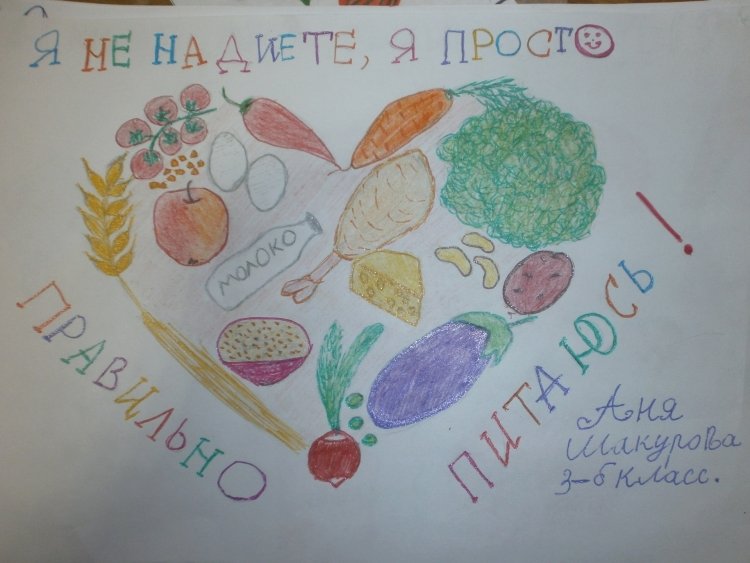 Я НЕ НА ДИЕТЕ, Я ПРОСТО
ПРАВИЛЬНО
ПИТАЮСЬ!
МОЛОКО
Аня
Шакурова
3-б класс.